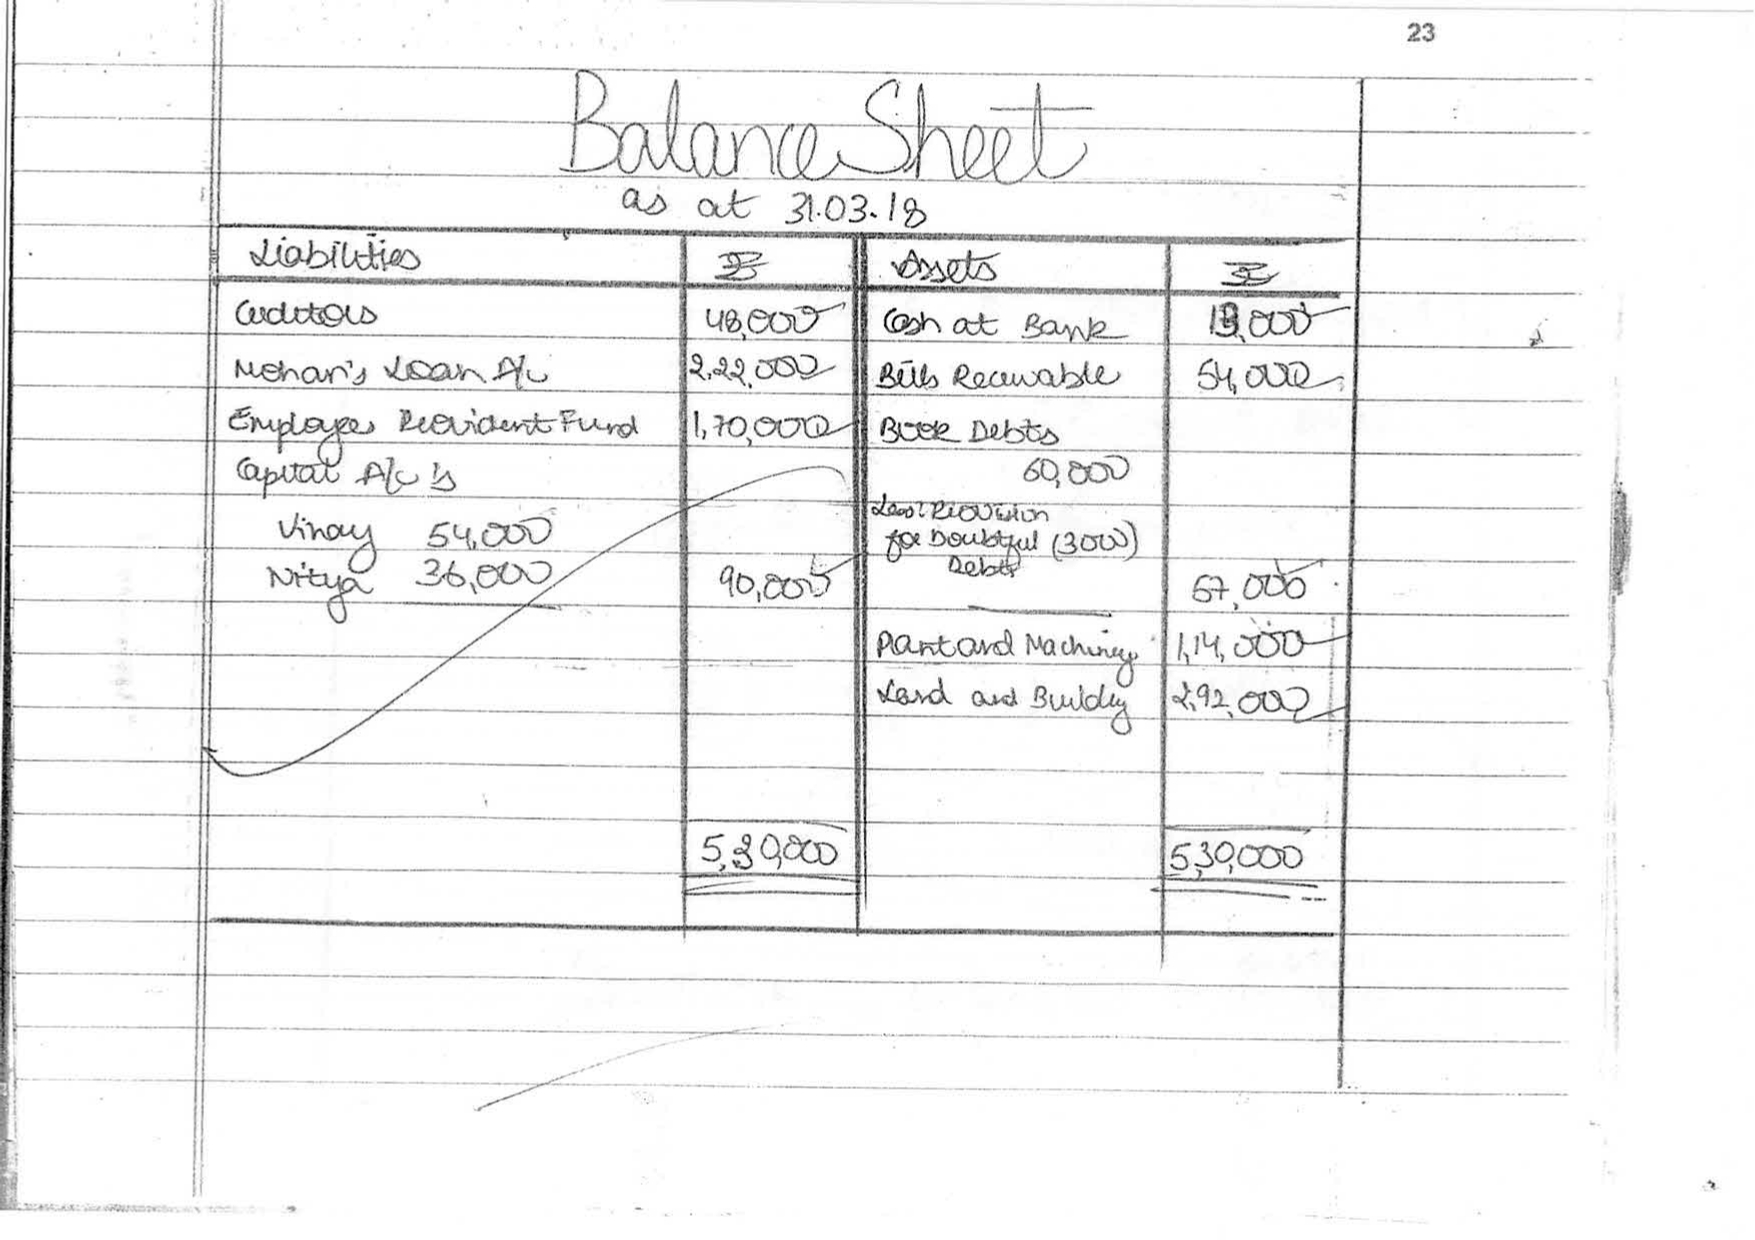 23
Balance Sheet
as at 31.03.18
Liabilities ₹ Assets ₹
Creditors 48,000 Cash at Bank 13,000
Mohan's Loan A/c 2,22,000 Bills Receivable 54,000
Employees Provident Fund 1,70,000 Book Debts
Capital A/c's 60,000
Vinay 54,000 Less: Provision
for Doubtful (3000)
Nitya 36,000 90,000 Debts 57,000
Plant and Machinery 1,14,000
Land and Building 2,92,000
5,30,000 5,30,000